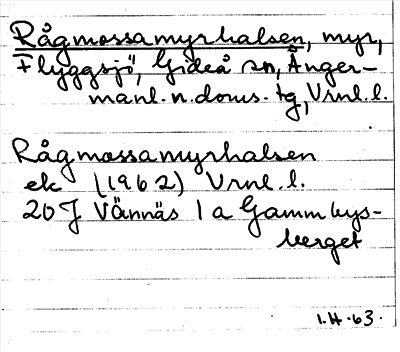 Rågmossamyrhalsen, myr,
Flyggsjö, Gideå sn, Ånger-
manl. n. doms. tg, Vrnl. l.
Rågmossamyrhalsen
ek (1962) Vrnl. l.
20 J Vännäs 1 a Gammbys-
berget
1.H.63.